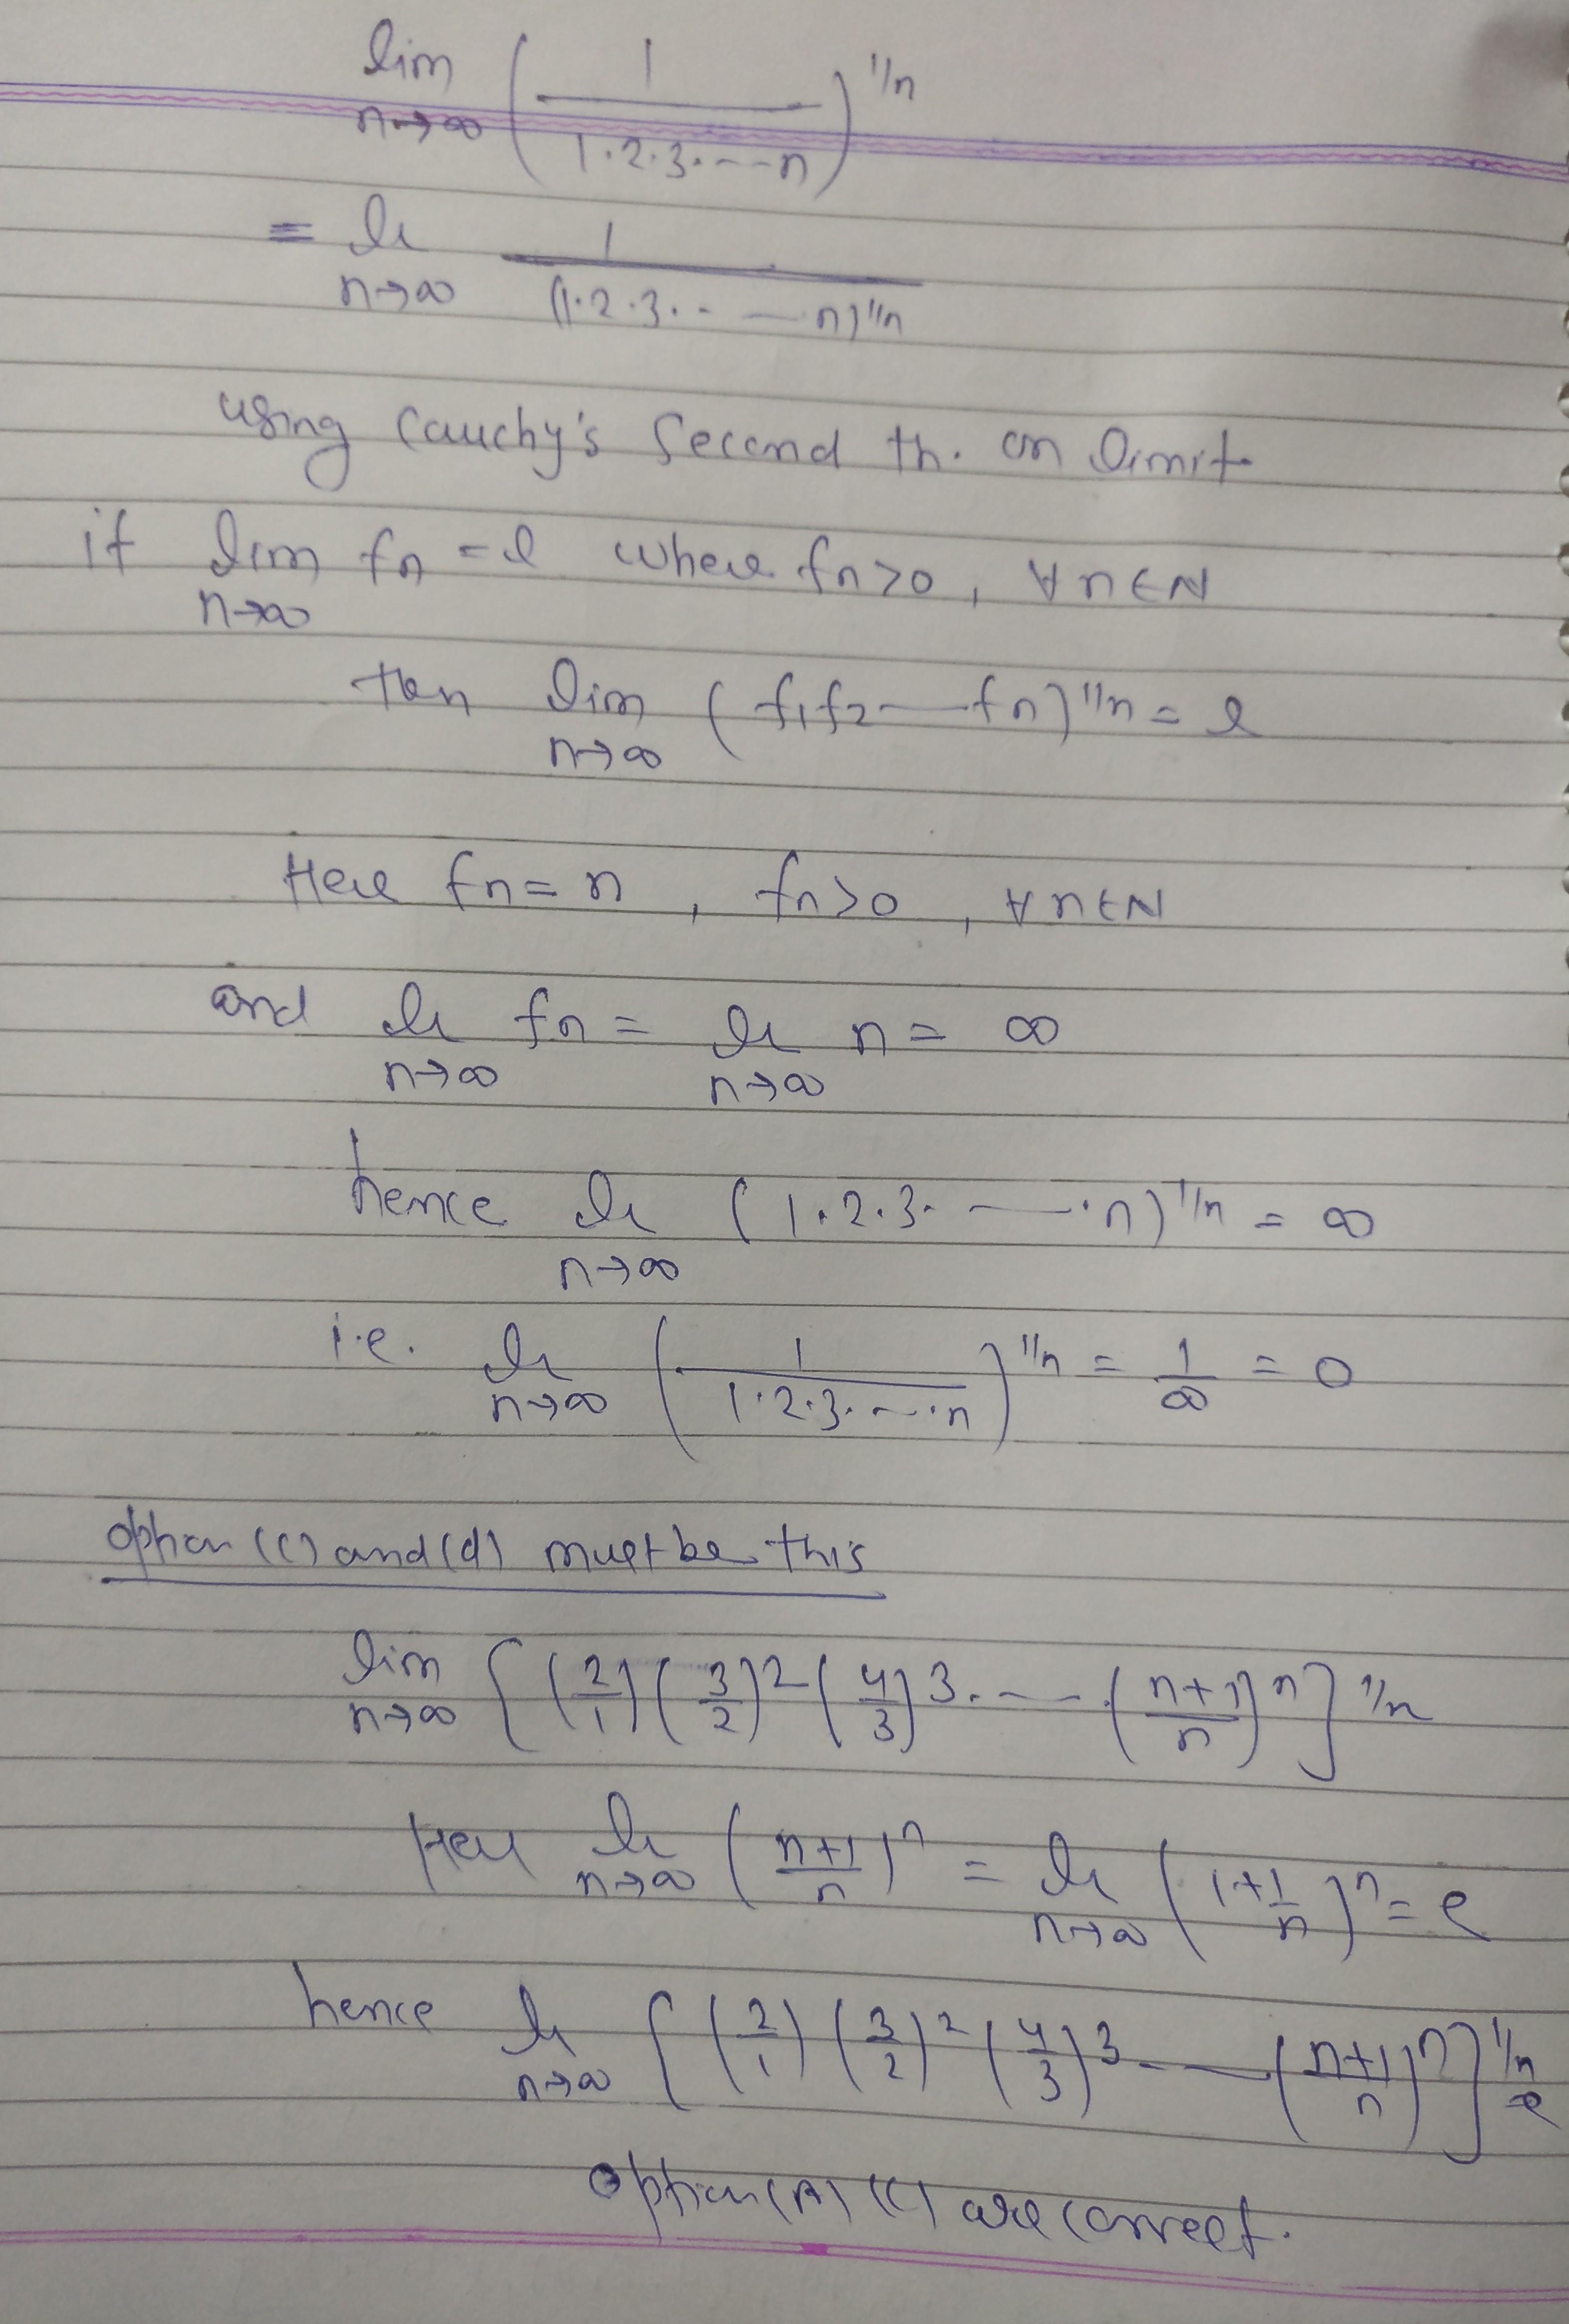 lim n→∞ (1/(1·2·3·---n))^1/n
= lt n→∞ 1/(1·2·3·-- —n)^1/n
using Cauchy's Second th. on limit
if lim n→∞ fn = l where fn>0, ∀ n∈N
then lim n→∞ (f1f2——fn)^1/n = l
Here fn=n, fn>0, ∀ n∈N
and lt n→∞ fn = lt n→∞ n = ∞
hence lt n→∞ (1·2·3·——·n)^1/n = ∞
i.e. lt n→∞ (1/(1·2·3·---·n))^1/n = 1/∞ = 0
option (c) and (d) must be this
lim n→∞ {(2/1)(3/2)^2(4/3)^3·---(n+1/n)^n}^1/n
Here lt n→∞ (n+1/n)^n = lt n→∞ (1+1/n)^n = e
hence lt n→∞ {(2/1)(3/2)^2(4/3)^3---(n+1/n)^n}^1/n = e
option (A) (C) are correct.